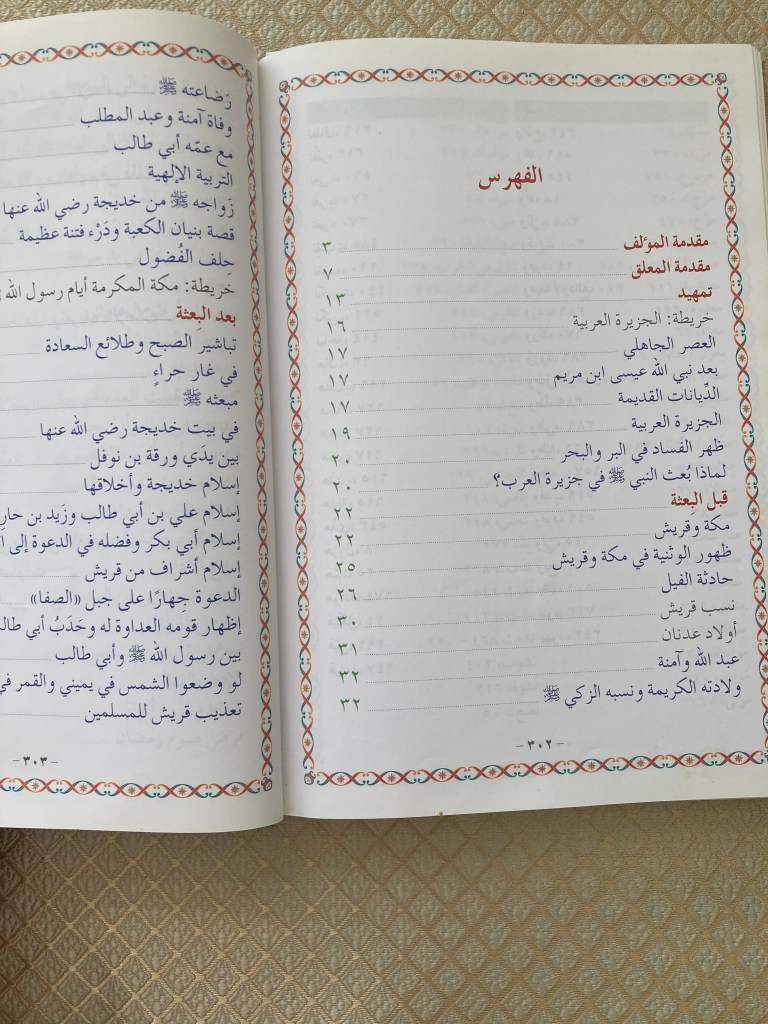 الفهرس
مقدمة المؤلف ٣
مقدمة المعلق ٧
تمهيد ١٣
خريطة: الجزيرة العربية ١٦
العصر الجاهلي ١٧
بعد نبي الله عيسى ابن مريم ١٧
الدِّيانات القديمة ١٧
الجزيرة العربية ١٩
ظهر الفساد في البر والبحر ٢٠
لماذا بُعث النبي ﷺ في جزيرة العرب؟ ٢٠
قبل البِعثة ٢٢
مكة وقريش ٢٢
ظهور الوثنية في مكة وقريش ٢٥
حادثة الفيل ٢٦
نسب قريش ٣٠
أولاد عدنان ٣١
عبد الله وآمنة ٣٢
ولادته الكريمة ونسبه الزكي ﷺ ٣٢
-٣٠٢-
رَضاعته ﷺ
وفاة آمنة وعبد المطلب
مع عمّه أبي طالب
التربية الإلهية
زَواجه ﷺ من خديجة رضي الله عنها
قصة بنيان الكعبة ودَرْء فتنة عظيمة
حِلف الفُضول
خريطة: مكة المكرمة أيام رسول الله
بعد البِعثة
تباشير الصبح وطلائع السعادة
في غار حراءٍ
مبعثه ﷺ
في بيت خديجة رضي الله عنها
بين يدَي ورقة بن نوفل
إسلام خديجة وأخلاقها
إسلام علي بن أبي طالب وزَيد بن
إسلام أبي بكر وفضله في الدعوة إلى
إسلام أشراف من قريش
الدعوة جِهارًا على جبل «الصفا»
إظهار قومه العداوة له وحَدَبُ أبي
بين رسول الله ﷺ وأبي طالب
لو وضعوا الشمس في يميني والقمر في
تعذيب قريش للمسلمين
-٣٠٣-